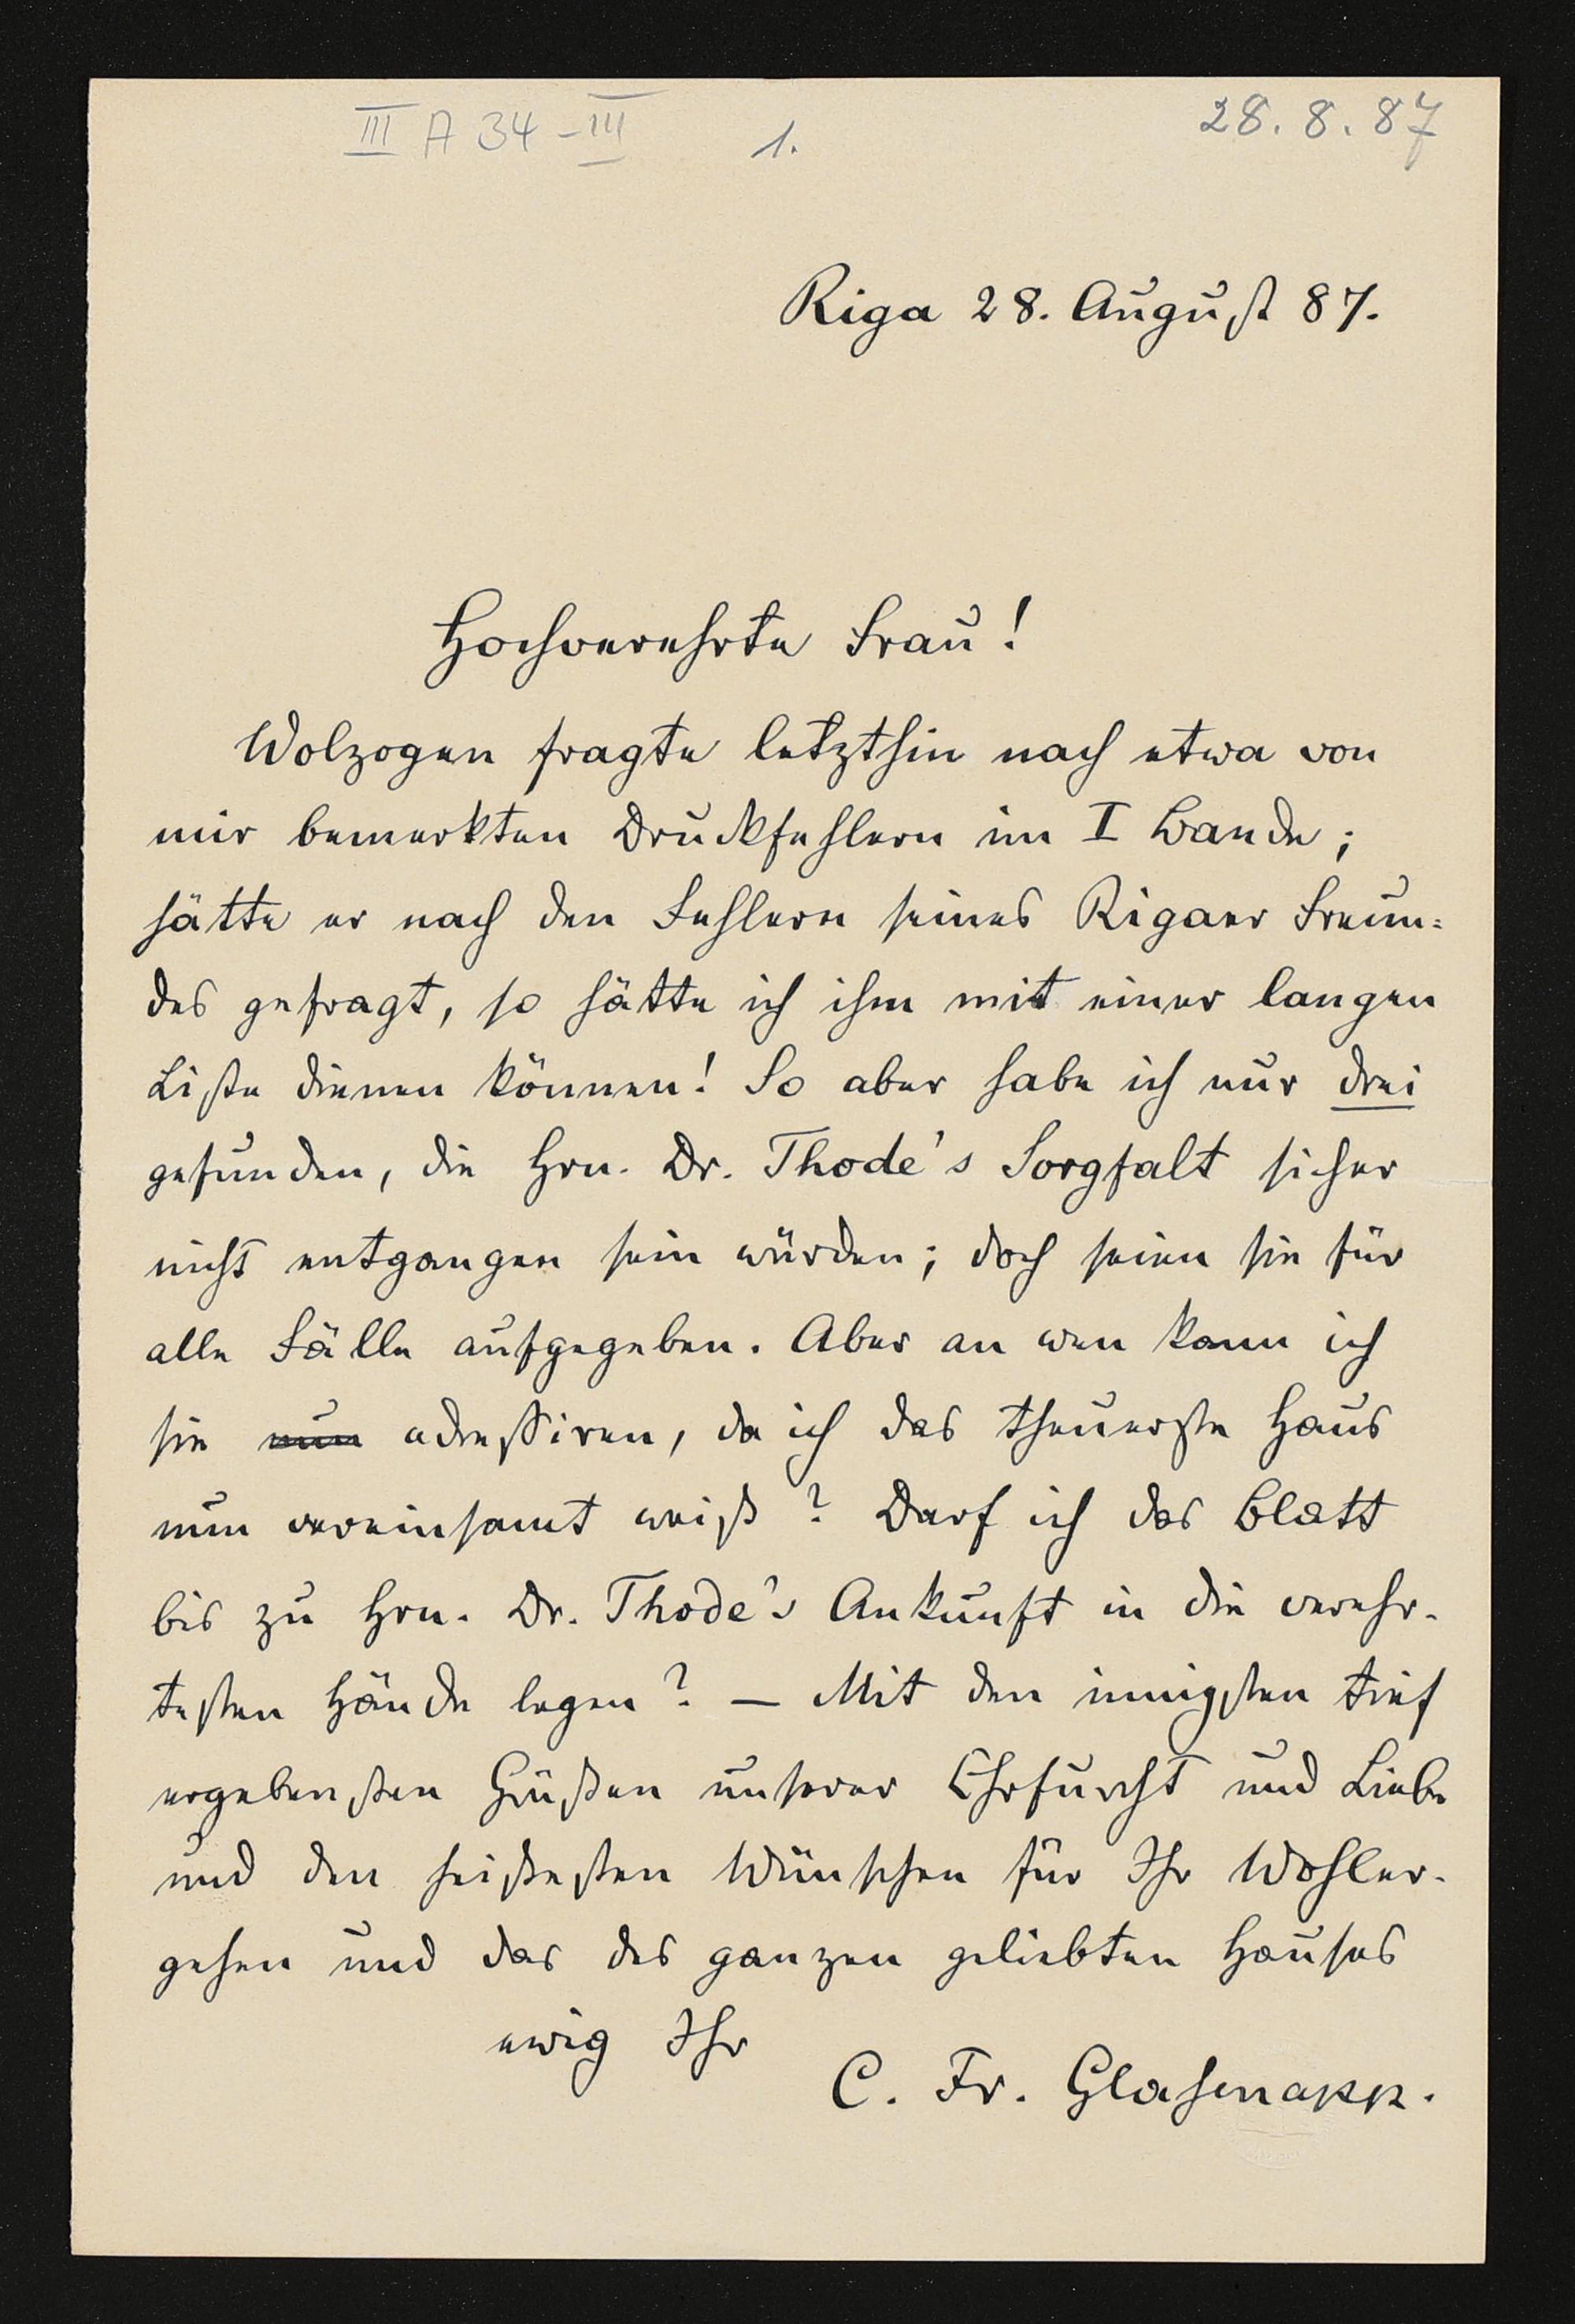 III A 34-III 1. 28. 8. 87
Riga 28. August 87.
Hochverehrte Frau!
Wolzogen fragte letzthin nach etwa von
mir bemerkten Druckfehlern im I Bande;
hätte er nach den Fehlern seines Rigaer Freun=
des gefragt, so hätte ich ihm mit einer langen
Liste dienen können! So aber habe ich nur drei
gefunden, die Hrn. Dr. Thode's Sorgfalt sicher
nicht entgangen sein würden; doch seien sie für
alle Fälle aufgegeben. Aber an wen kann ich
sie nun adressiren, da ich das theuerste Haus
nun vereinsamt weiß? Darf ich das Blatt
bis zu Hrn. Dr. Thode's Ankunft in die verehr-
testen Hände legen? – Mit den innigsten tief
ergebensten Grüßen unserer Ehrfurcht und Liebe
und den heißesten Wünschen für Ihr Wohler-
gehen und das des ganzen geliebten Hauses
ewig Ihr
C. Fr. Glasenapp.